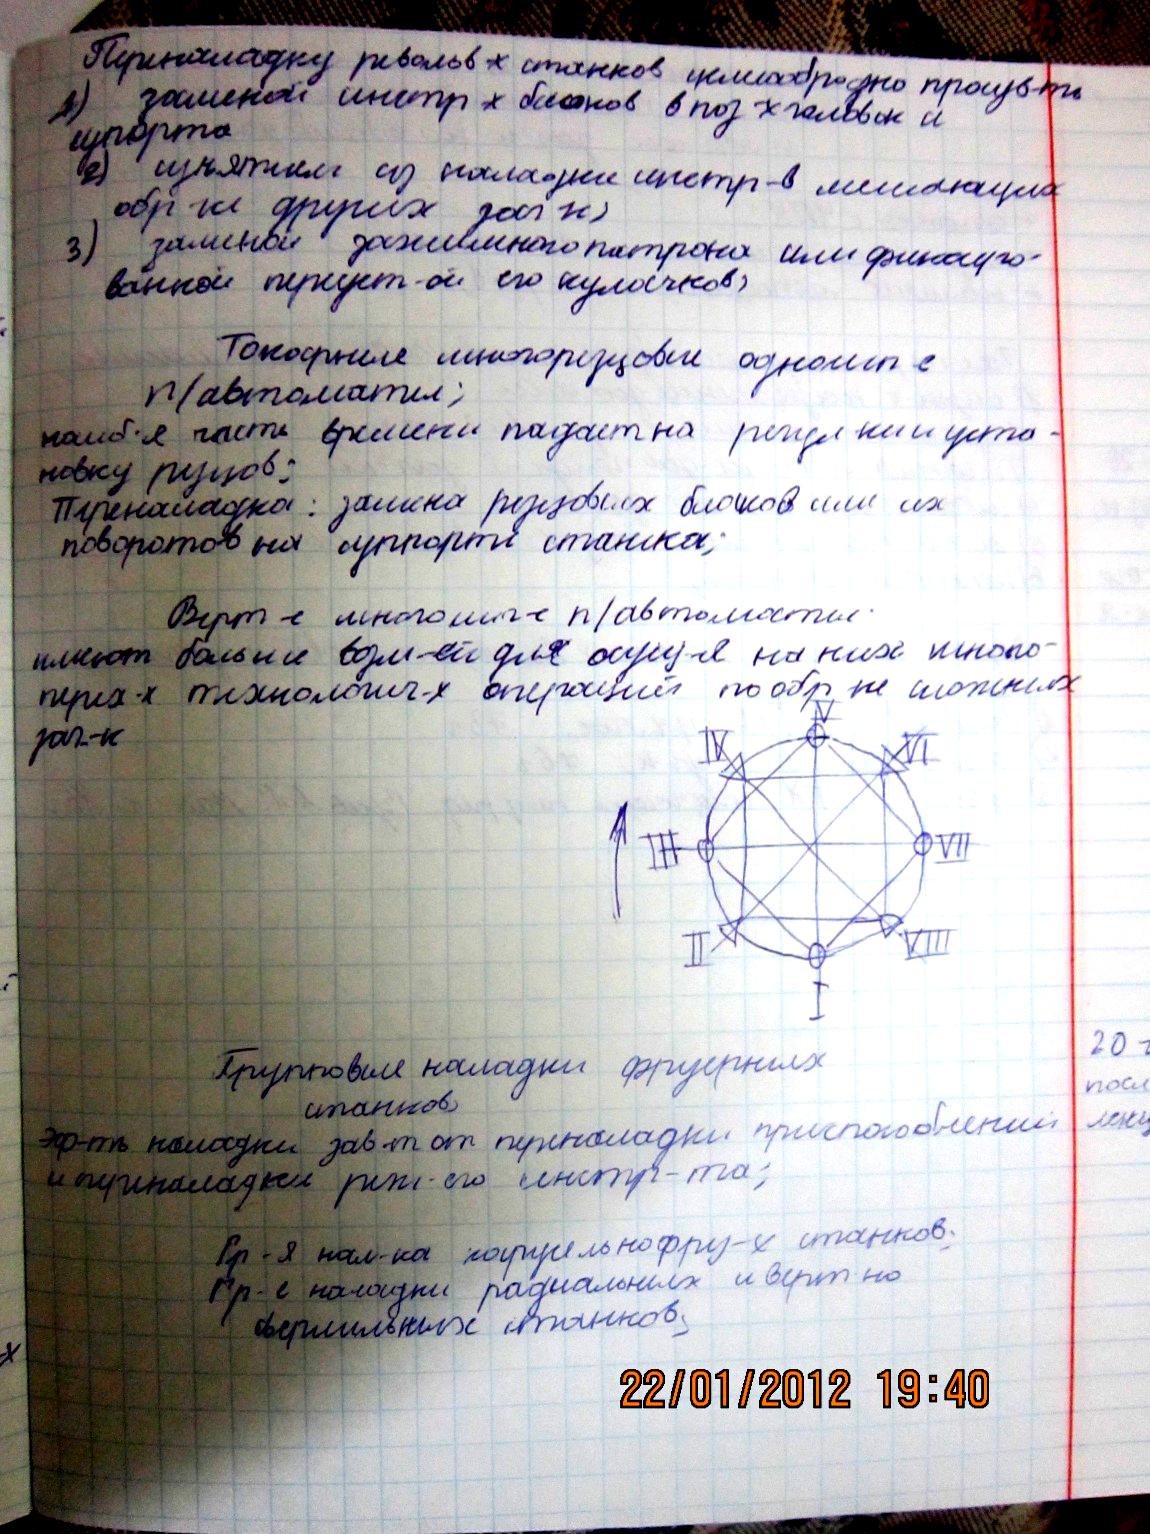 Переналадку револьв-х станков целесообразно произв-ть
1) заменой инстр-х блоков в поз-х головок и
суппорта
2) изъятием из наладки инстр-в мешающих
обр-ке других заг-к;
3) заменой зажимного патрона или
ванной перуст-ой его кулачков;
Токарные многорезцовые одношп-е
п/автоматы;
наиб-я часть времени падает на регул-ку и уста-
новку резцов;
Переналадка: замена резцовых блоков или их
поворотов на суппорте станка;
Верт-е многошп-е п/автоматы.
имеют больше возм-ей для осущ-я на них много-
перех-х технологич-х операций по обр-ке сложных
заг-к
V
IV VI
III VII
II VIII
I
Групповые наладки фрезерных
станков
Эф-ть наладки зав-т от переналадки приспособлений
и переналадки реж-его инстр-та;
Гр-я нал-ка карусельнофрез-х станков;
Гр-е наладки радиальных и верт-но
сверлильных станков;
20
посл
лекц
х
22/01/2012 19:40